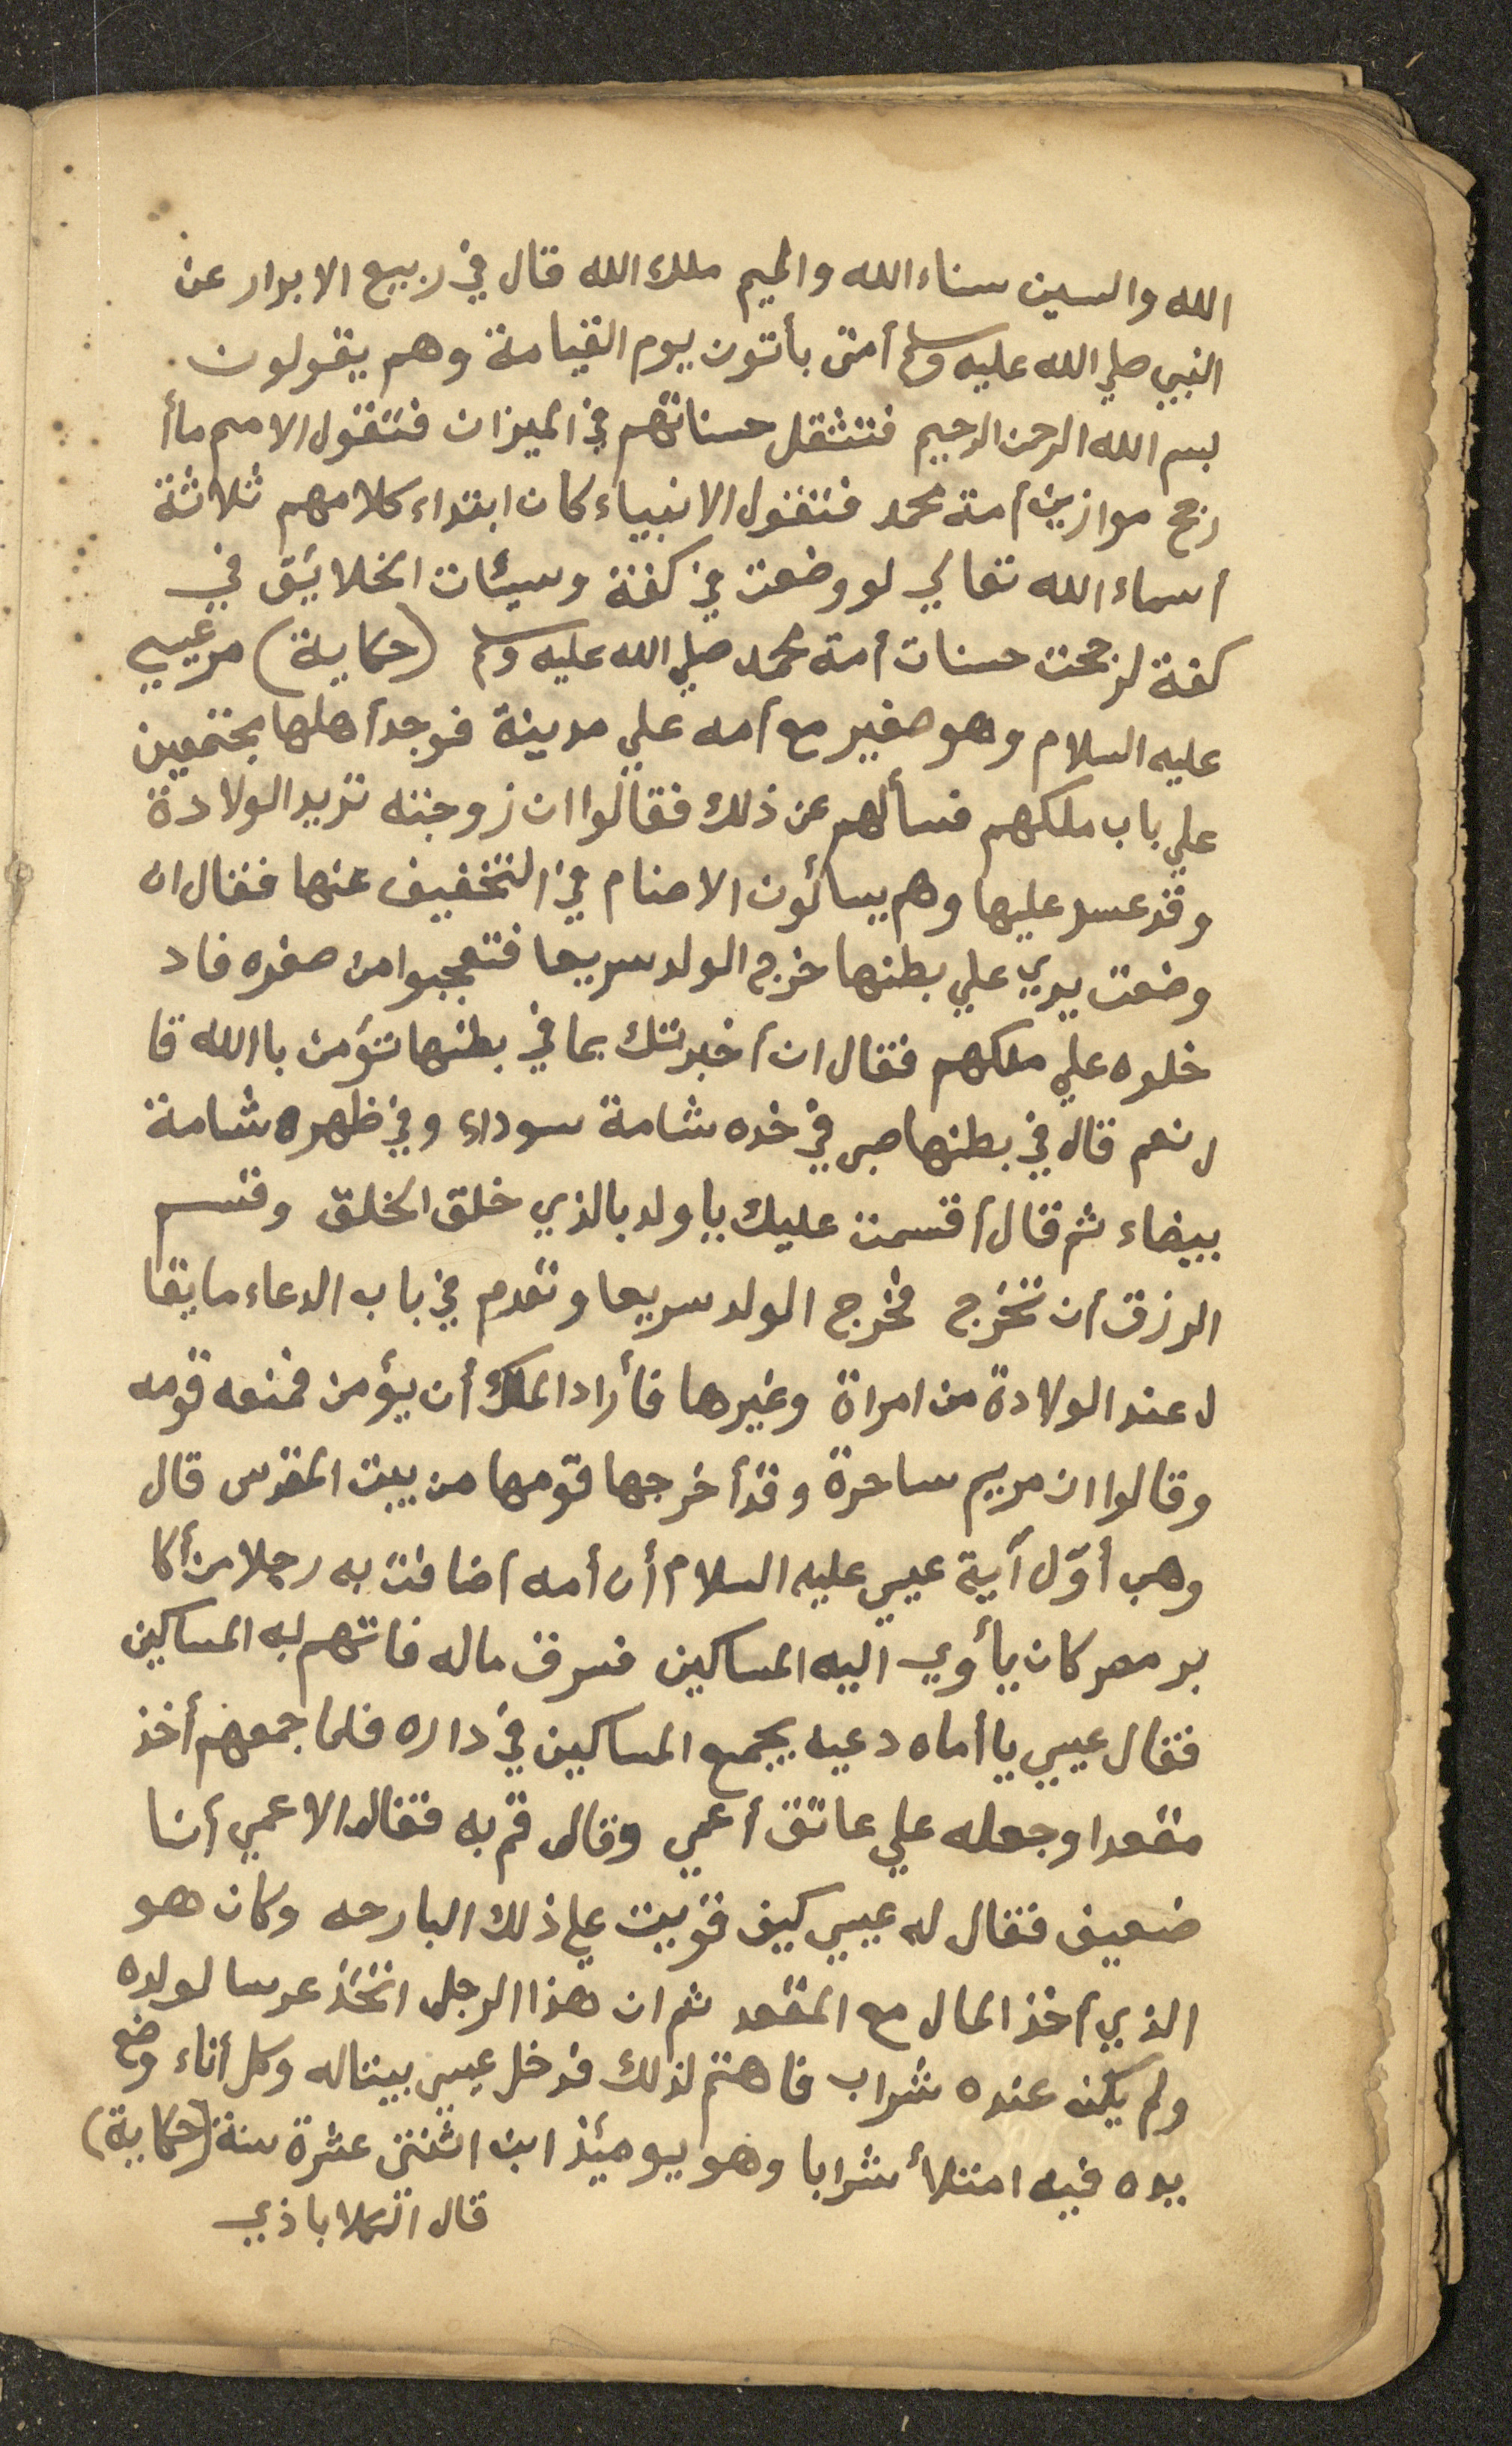 الله والسين سناء الله والميم ملك الله قال في ربيع الابرار عن
النبي صلي الله عليه وسلم أمتى يأتون يوم القيامة وهم يقولون
بسم الله الرحمن الرحيم فتثقل حسناتهم في الميزان فتقول الامم ماأ
رجح موازين أمة محمد فتقول الانبياء كان ابتداء كلامهم ثلاثة
أسماء الله تعالي لو وضعت في كفة وسيئات الخلائق في
كفة لرجحت حسنات أمة محمد صلي الله عليه وسلم (حكاية) مر عيسي
عليه السلام وهو صغير مع أمه علي مدينة فوجد أهلها مجتمعين
علي باب ملكهم فسألهم عن ذلك فقالوا ان زوجته تريد الولادة
وقد عسر عليها وهم يسألون الاصنام في التخفيف عنها فقال ان
وضعت يدي علي بطنها خرج الولد سريعا فتعجبوا من صغره فاد
خلوه علي ملكهم فقال ان أخبرتك بما في بطنها تؤمن باالله قا
ل نعم قال في بطنها صبى في خده شامة سوداء وفي ظهره شامة
بيضاء ثم قال أقسمت عليك يا ولد بالذي خلق الخلق وقسم
الرزق أن تخرج فخرج الولد سريعا وتقدم في باب الدعاء ما يقا
ل عند الولادة من امراة وغيرها فأراد الملك أن يؤمن فمنعه قومه
وقالوا ان مريم ساحرة وقد أخرجها قومها من بيت المقدس قال
وهب أوّل آية عيسي عليه السلام أن أمه أضافت به رجلا من أكا
بر مصر كان يأوي اليه المساكين فسرق ماله فاتهم به المساكين
فقال عيسي يا أماه دعيه يجمع المساكين في داره فلما جمعهم أخذ
مقعدا وجعله علي عاتق أعمي وقال قم به فقال الاعمي أنا
ضعيف فقال له عيسي كيف قويت علي ذلك البارحه وكان هو
الذي أخذ المال مع المقعد ثم ان هذا الرجل اتخذ عرسا لولده
ولم يكن عنده شراب فاهتم لذلك فدخل عيسي بيتاله وكل أناء وضع
يده فيه امتلأ شرابا وهو يومئذ ابن اثنتى عشرة سنة (حكاية)
قال الكلاباذي